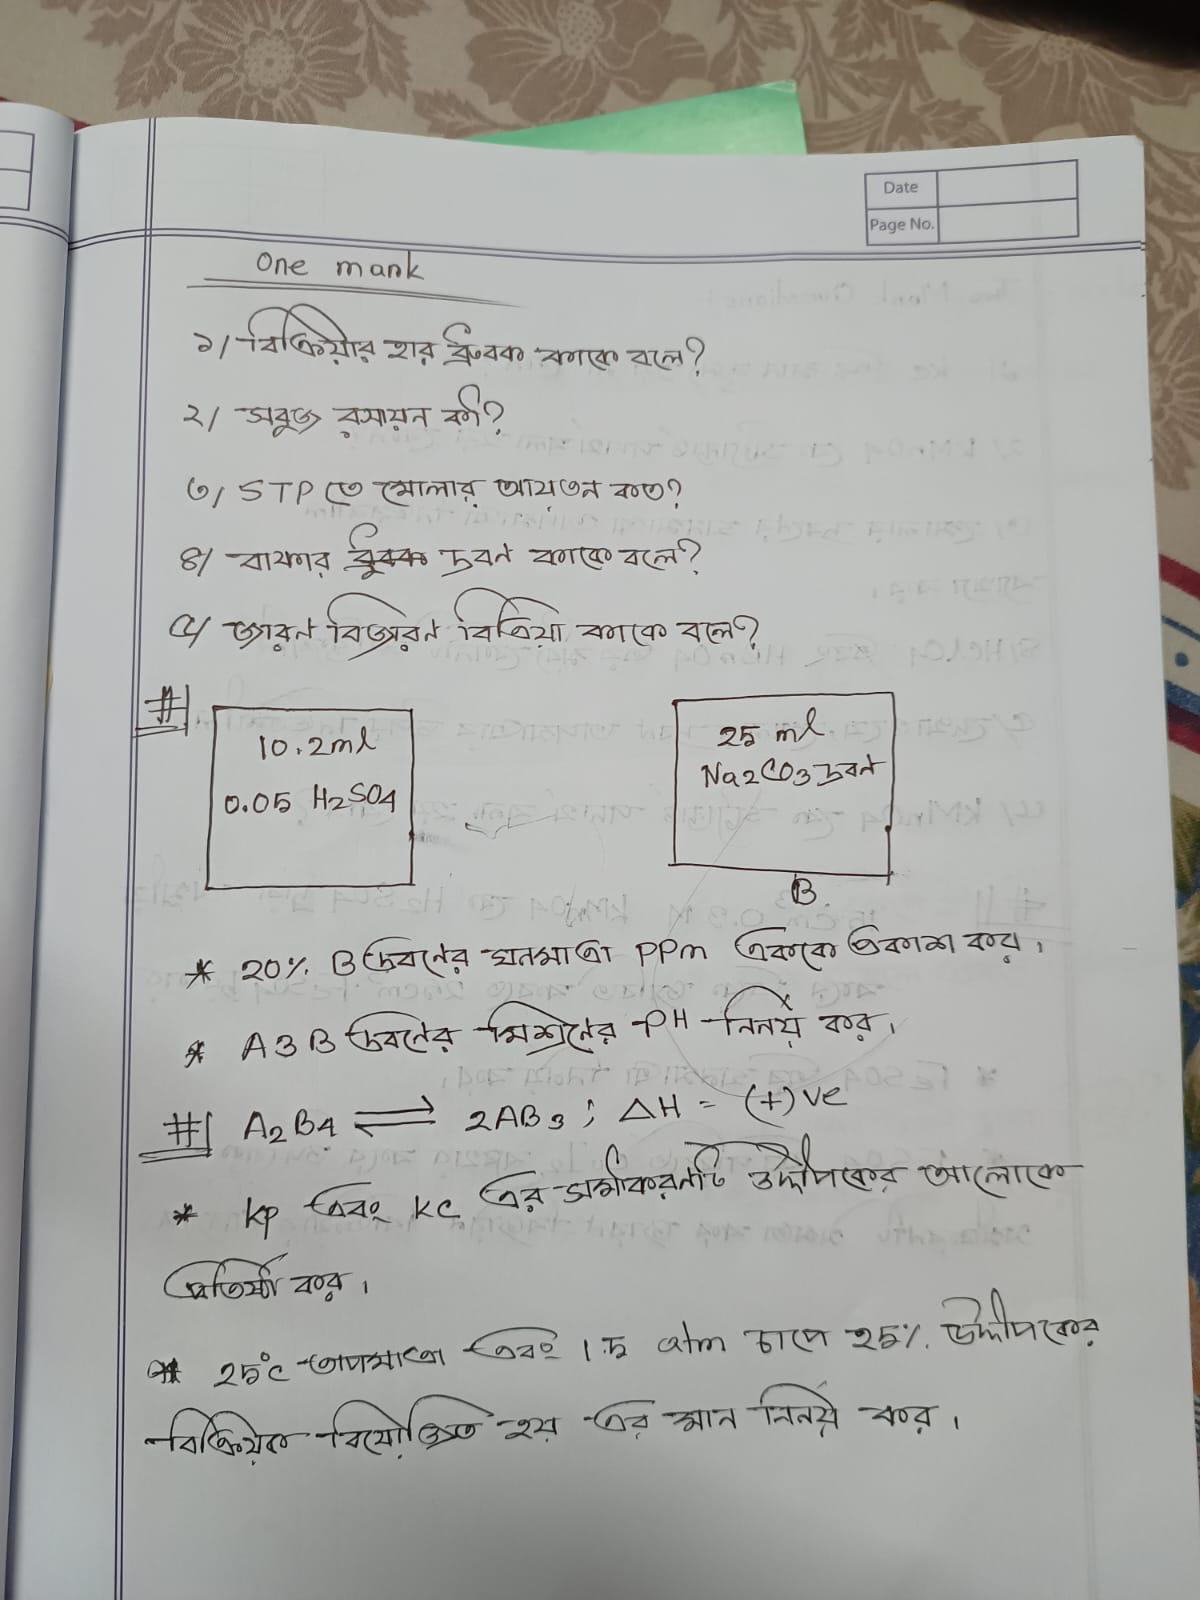 Date
Page No.
One mark
১/ বিক্রিয়ার হার ধ্রুবক কাকে বলে?
২/ সবুজ রসায়ন কী?
৩/ STP তে মোলার আয়তন কত?
৪/ বাফার দ্রবণ কাকে বলে?
৫/ জারণ বিজারণ বিক্রিয়া কাকে বলে?
#
10.2ml
0.05 H2SO4
25 ml
Na2CO3 দ্রবণ
B
* 20% B দ্রবণের ঘনমাত্রা PPm এককে প্রকাশ কর।
* A ও B দ্রবণের মিশ্রণের PH নির্নয় কর।
# A2B4 ⇌ 2AB3 ; ΔH = (+)ve
* kp এবং kc এর সমীকরণটি উদ্দীপকের আলোকে
প্রতিষ্ঠা কর।
* 25°c তাপমাত্রা এবং 1.5 atm চাপে 25% উদ্দীপকের
বিক্রিয়ক বিয়োজিত হয় এর মান নির্নয় কর।